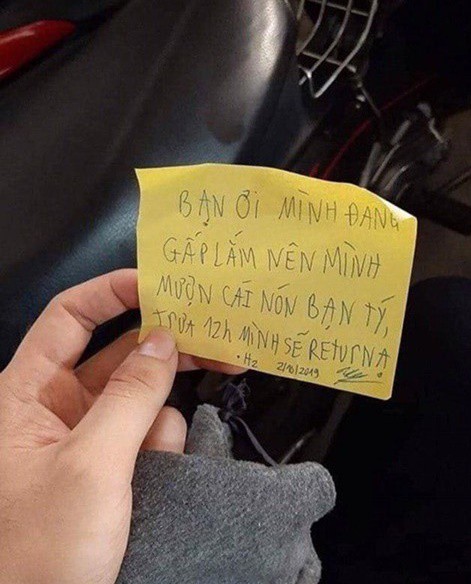 BẠN ƠI MÌNH ĐANG
GẤP LẮM NÊN MÌNH
MƯỢN CÁI NÓN BẠN TÝ,
TRƯA 12h MÌNH SẼ RETURN Ạ
2/10/2019